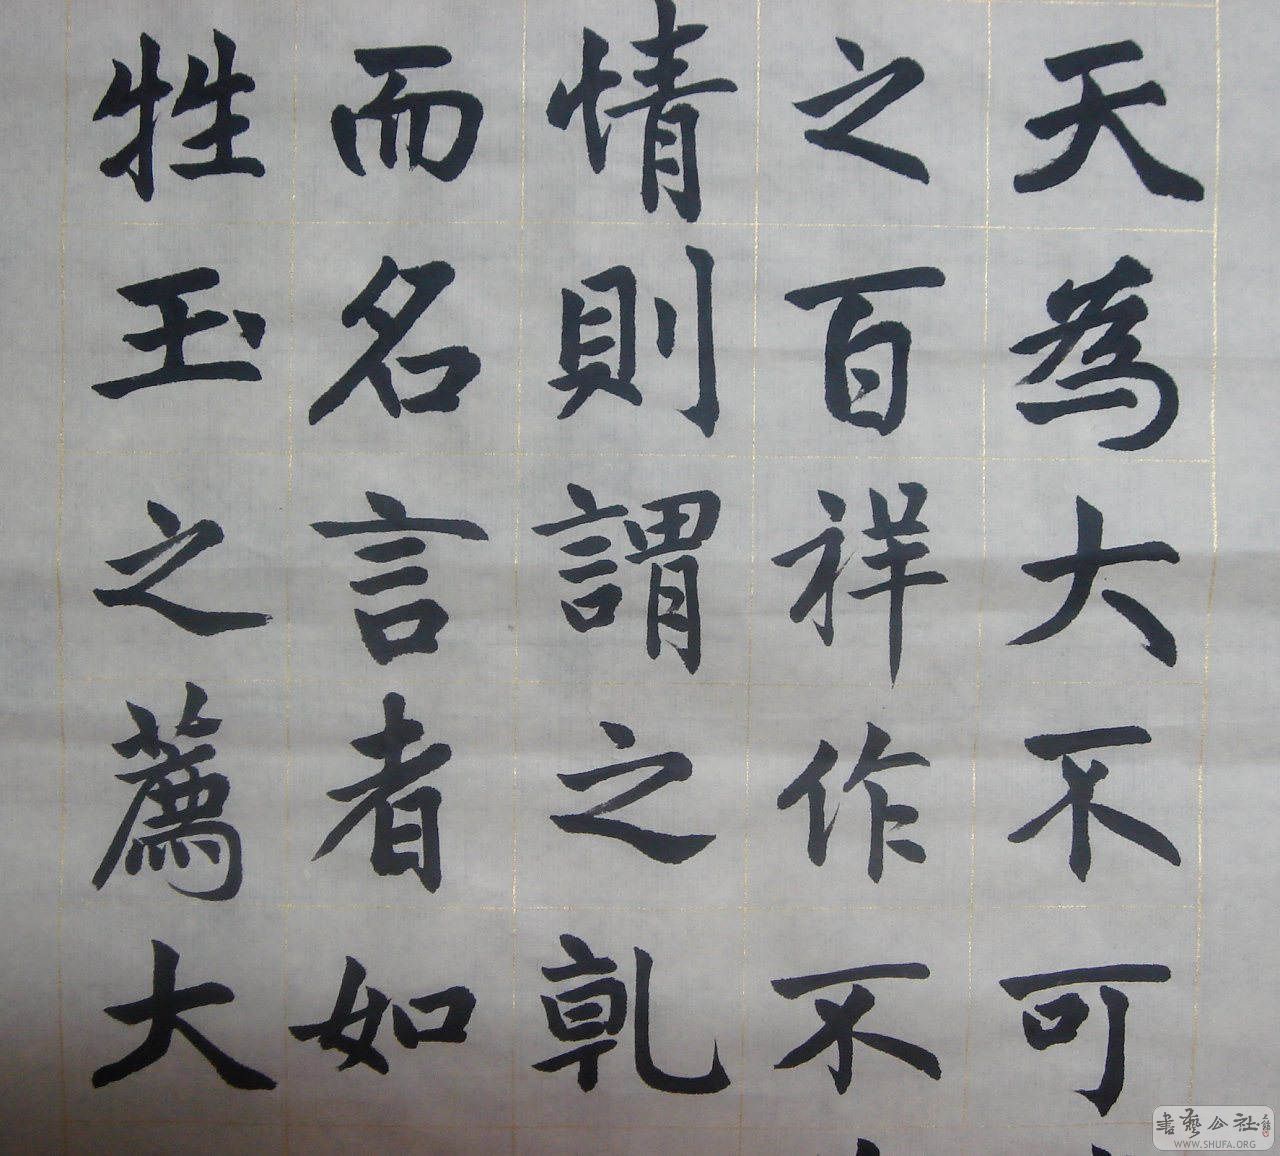 天為大不可
之百祥作不
情則謂之乹
而名言者如
牲玉之薦大
書藝公社
WWW.SHUFA.ORG